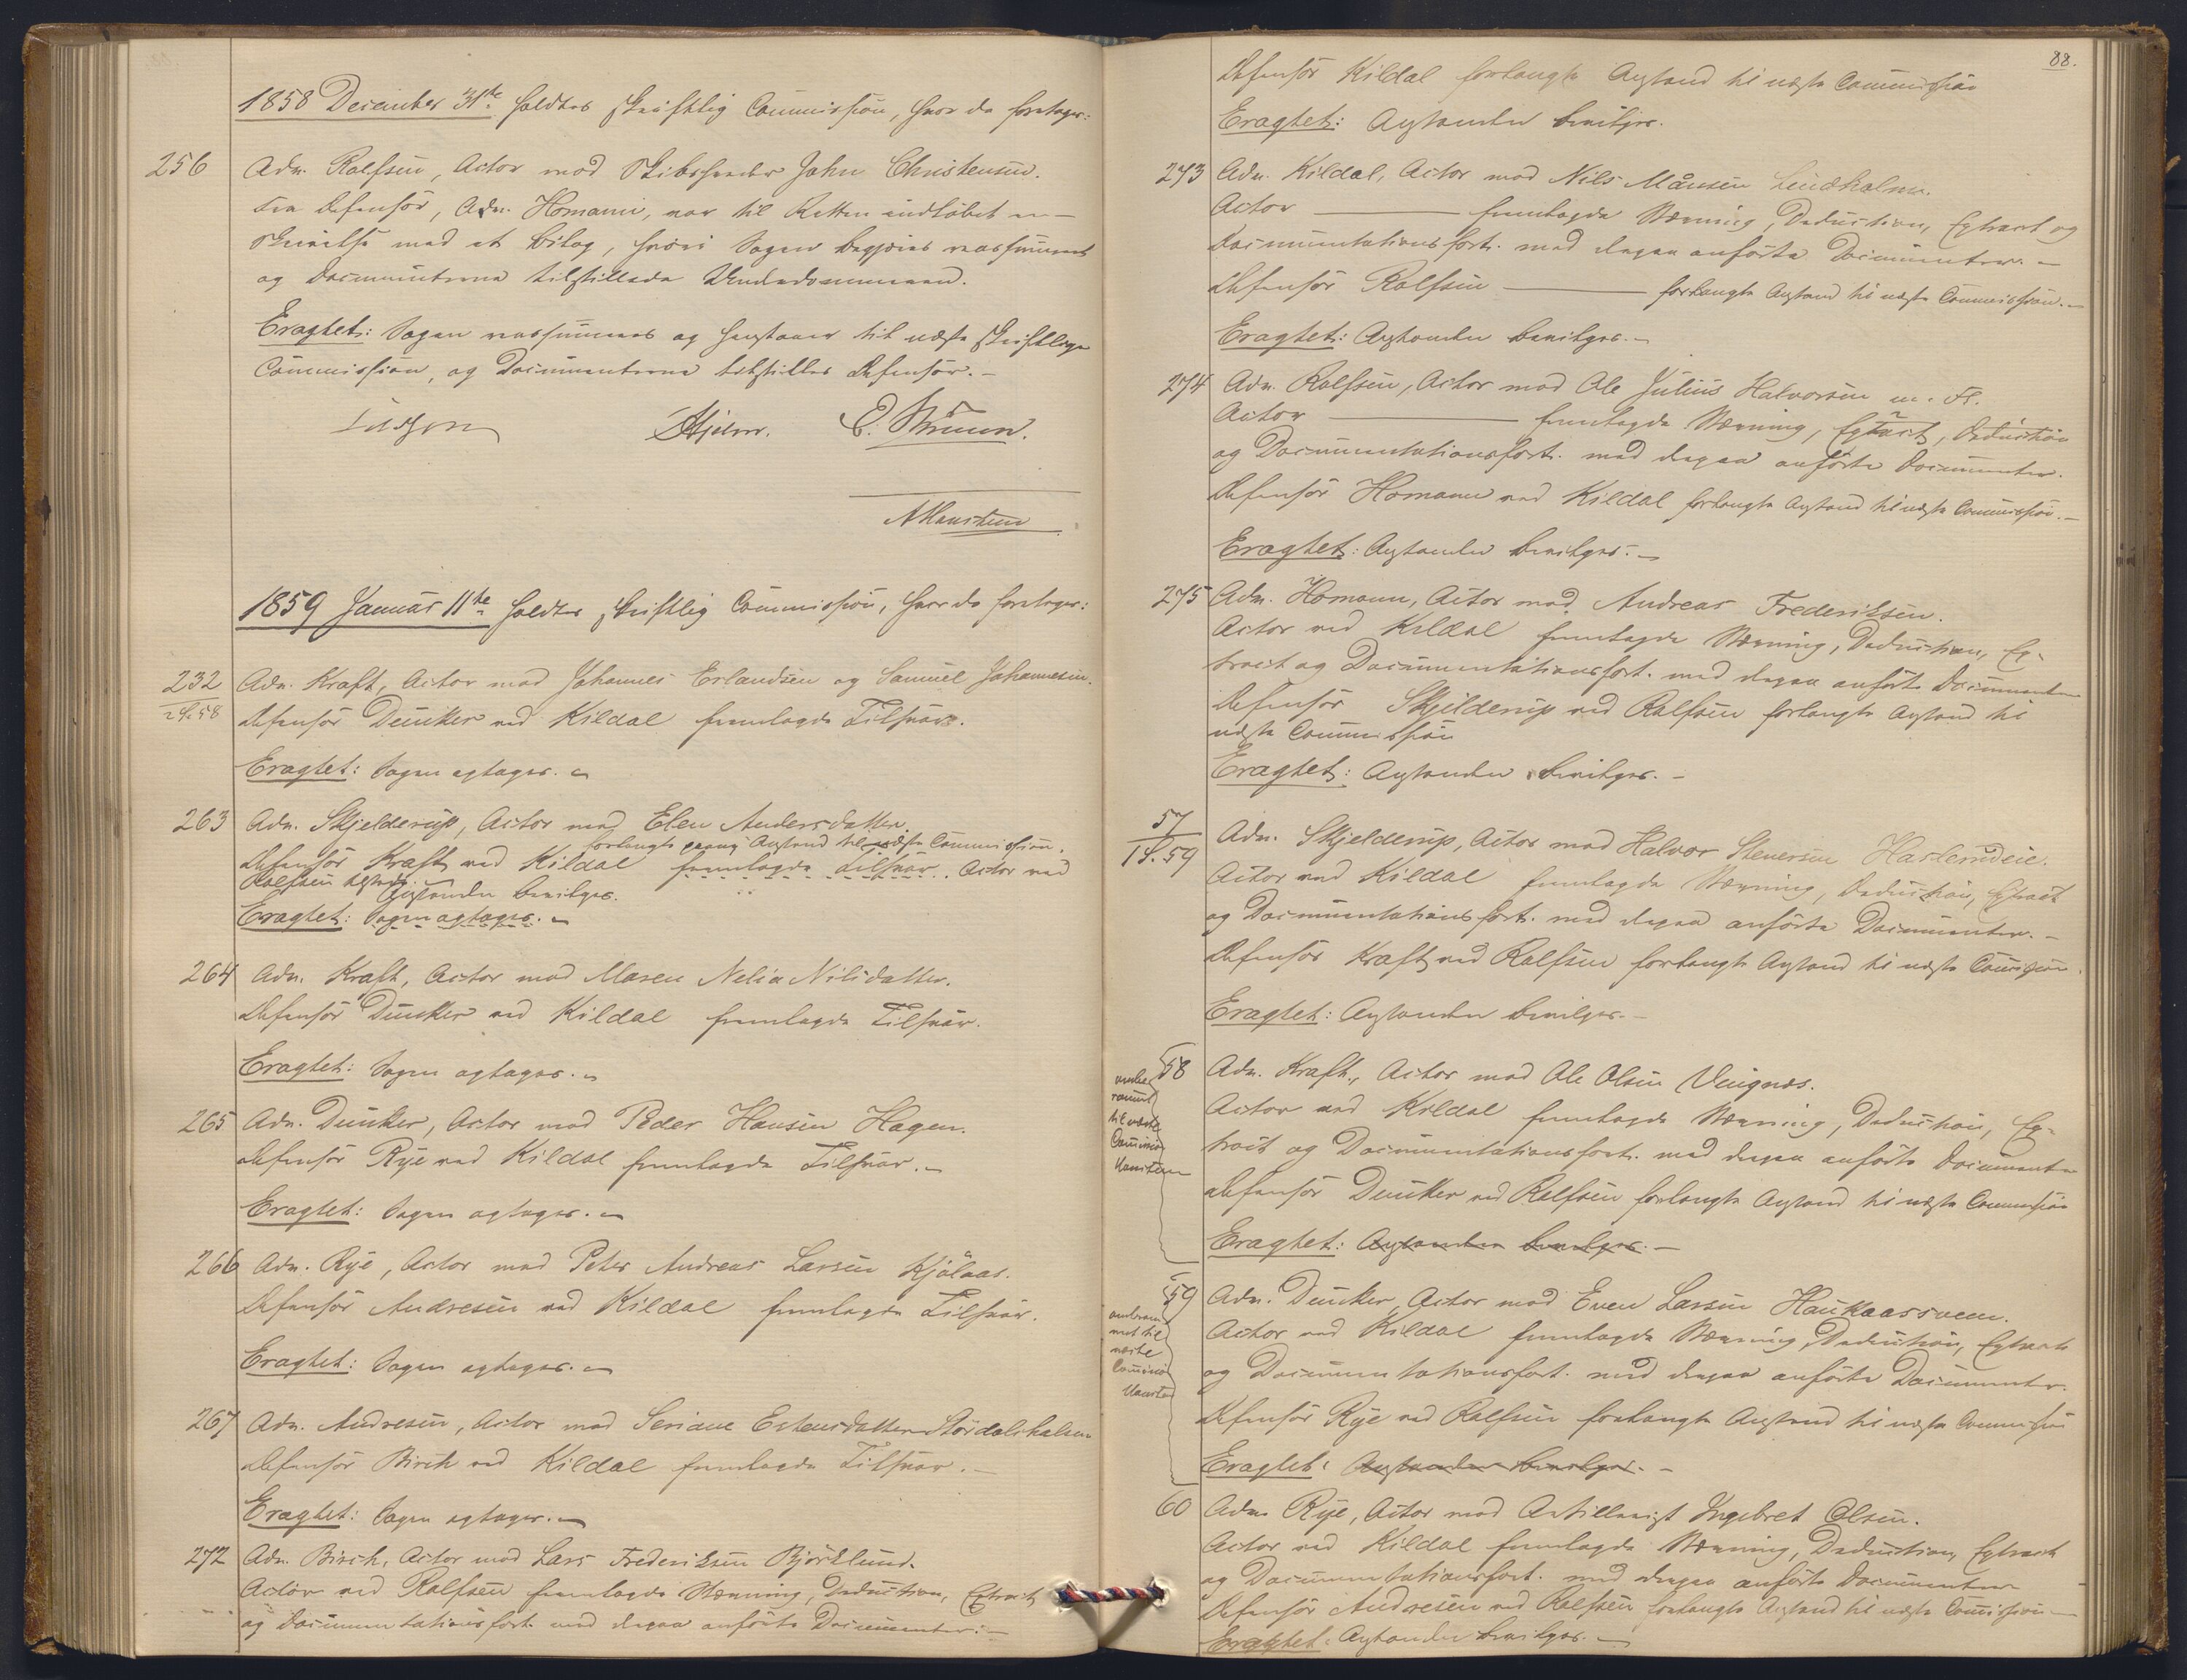 1858 December 31te holdtes skriftlig Commission, hvor da foretages:
256 Adv. Rolfsen, Actor mod Skibstømmermand John Christensen.
Fra Defensor, Adv. Homann, var til Retten indløbet en
Skrivelse med et Bilag, hvori Sagen begjæres reassumeret
og Documenterne tilstillede Underdommeren.
Eragtet: Sagen reassumeres og henstaaer til næste skriftlige
Commission, og Documenterne tilstilles Defensor. -
Lasson Hjelm. E. Motzfeldt.
A Manthey
1859 Januar 11te holdtes skriftlig Commission, hvor da foretages:
232 Adv. Kraft, Actor mod Johannes Erlandsen og Samuel Johannesen.
2 S. 58 Defensor Dunker ved Kildal fremlagde Tilsvar.
Eragtet: Sagen optages. -
263 Adv. Skjelderup, Actor mod Elen Andersdatter.
forlangte Anstand til næste Commission.
Defensor Kraft ved Kildal fremlagde Tilsvar. Actor ved
Rolfsen tilstede.
Anstanden bevilges.
Eragtet: Sagen optages. -
264 Adv. Kraft, Actor mod Maren Nelia Nilsdatter.
Defensor Dunker ved Kildal fremlagde Tilsvar.
Eragtet: Sagen optages. -
265 Adv. Dunker, Actor mod Peder Hansen Hagen.
Defensor Rye ved Kildal fremlagde Tilsvar. -
Eragtet: Sagen optages. -
266 Adv. Rye, Actor mod Peter Andreas Larsen Kjölaas.
Defensor Andresen ved Kildal fremlagde Tilsvar.
Eragtet: Sagen optages. -
267 Adv. Andresen, Actor mod Seriane Estensdatter Stördalshalsen
Defensor Birch ved Kildal fremlagde Tilsvar. -
Eragtet: Sagen optages. -
272 Adv. Birch, Actor mod Lars Frederiksen Björklund.
Actor ved Rolfsen fremlagde Stevning, Deduction, Extract
og Documentationsfort. med derpaa anförte Documenter. -
88.
Defensor Kildal forlangte Anstand til næste Commission
Eragtet: Anstanden bevilges.
273 Adv. Kildal, Actor mod Nils Månsen Lindholm.
Actor — fremlagde Stevning, Deduction, Extract og
Documentationsfort. med derpaa anförte Documenter. -
Defensor Rolfsen — forlangte Anstand til næste Commission. -
Eragtet: Anstanden bevilges. -
274 Adv. Rolfsen, Actor mod Ole Julius Halvorsen m. Fl.
Actor — fremlagde Stevning, Extract, Deduction
og Documentationsfort. med derpaa anförte Documenter.
Defensor Homann ved Kildal forlangte Anstand til næste Commission. -
Eragtet: Anstanden bevilges. -
275 Adv. Homann, Actor mod Andreas Frederiksen.
Actor ved Kildal fremlagde Stevning, Deduction, Ex-
tract og Documentationsfort. med derpaa anförte Documenter
Defensor Skjelderup ved Rolfsen forlangte Anstand til
næste Commission
Eragtet: Anstanden bevilges. -
57
1 S. 59 Adv. Skjelderup, Actor mod Halvor Stenersen Haslerudeie.
Actor ved Kildal fremlagde Stevning, Deduction, Extract
og Documentationsfort. med derpaa anförte Documenter. -
Defensor Kraft ved Rolfsen forlangte Anstand til næste Commission.
Eragtet: Anstanden bevilges. -
58 Adv. Kraft, Actor mod Ole Olsen Vingnæs.
Actor ved Kildal fremlagde Stevning, Deduction, Ex-
tract og Documentationsfort. med derpaa anförte Documenter
Defensor Dunker ved Rolfsen forlangte Anstand til næste Commission
Eragtet: Anstanden bevilges. -
omberammet
til næste
Commission
59 Adv. Dunker, Actor mod Even Larsen Haukaassveen.
Actor ved Kildal fremlagde Stevning, Deduction, Extract
og Documentationsfort. med derpaa anförte Documenter.
Defensor Rye ved Rolfsen forlangte Anstand til næste Commission
Eragtet: Anstanden bevilges. -
omberam-
met til
næste
Commission
60 Adv. Rye, Actor mod Artillerist Ingebret Olsen.
Actor ved Kildal fremlagde Stevning, Deduction, Extract
og Documentationsfort. med derpaa anförte Documenter
Defensor Andresen ved Rolfsen forlangte Anstand til næste Commission -
Eragtet: Anstanden bevilges. -